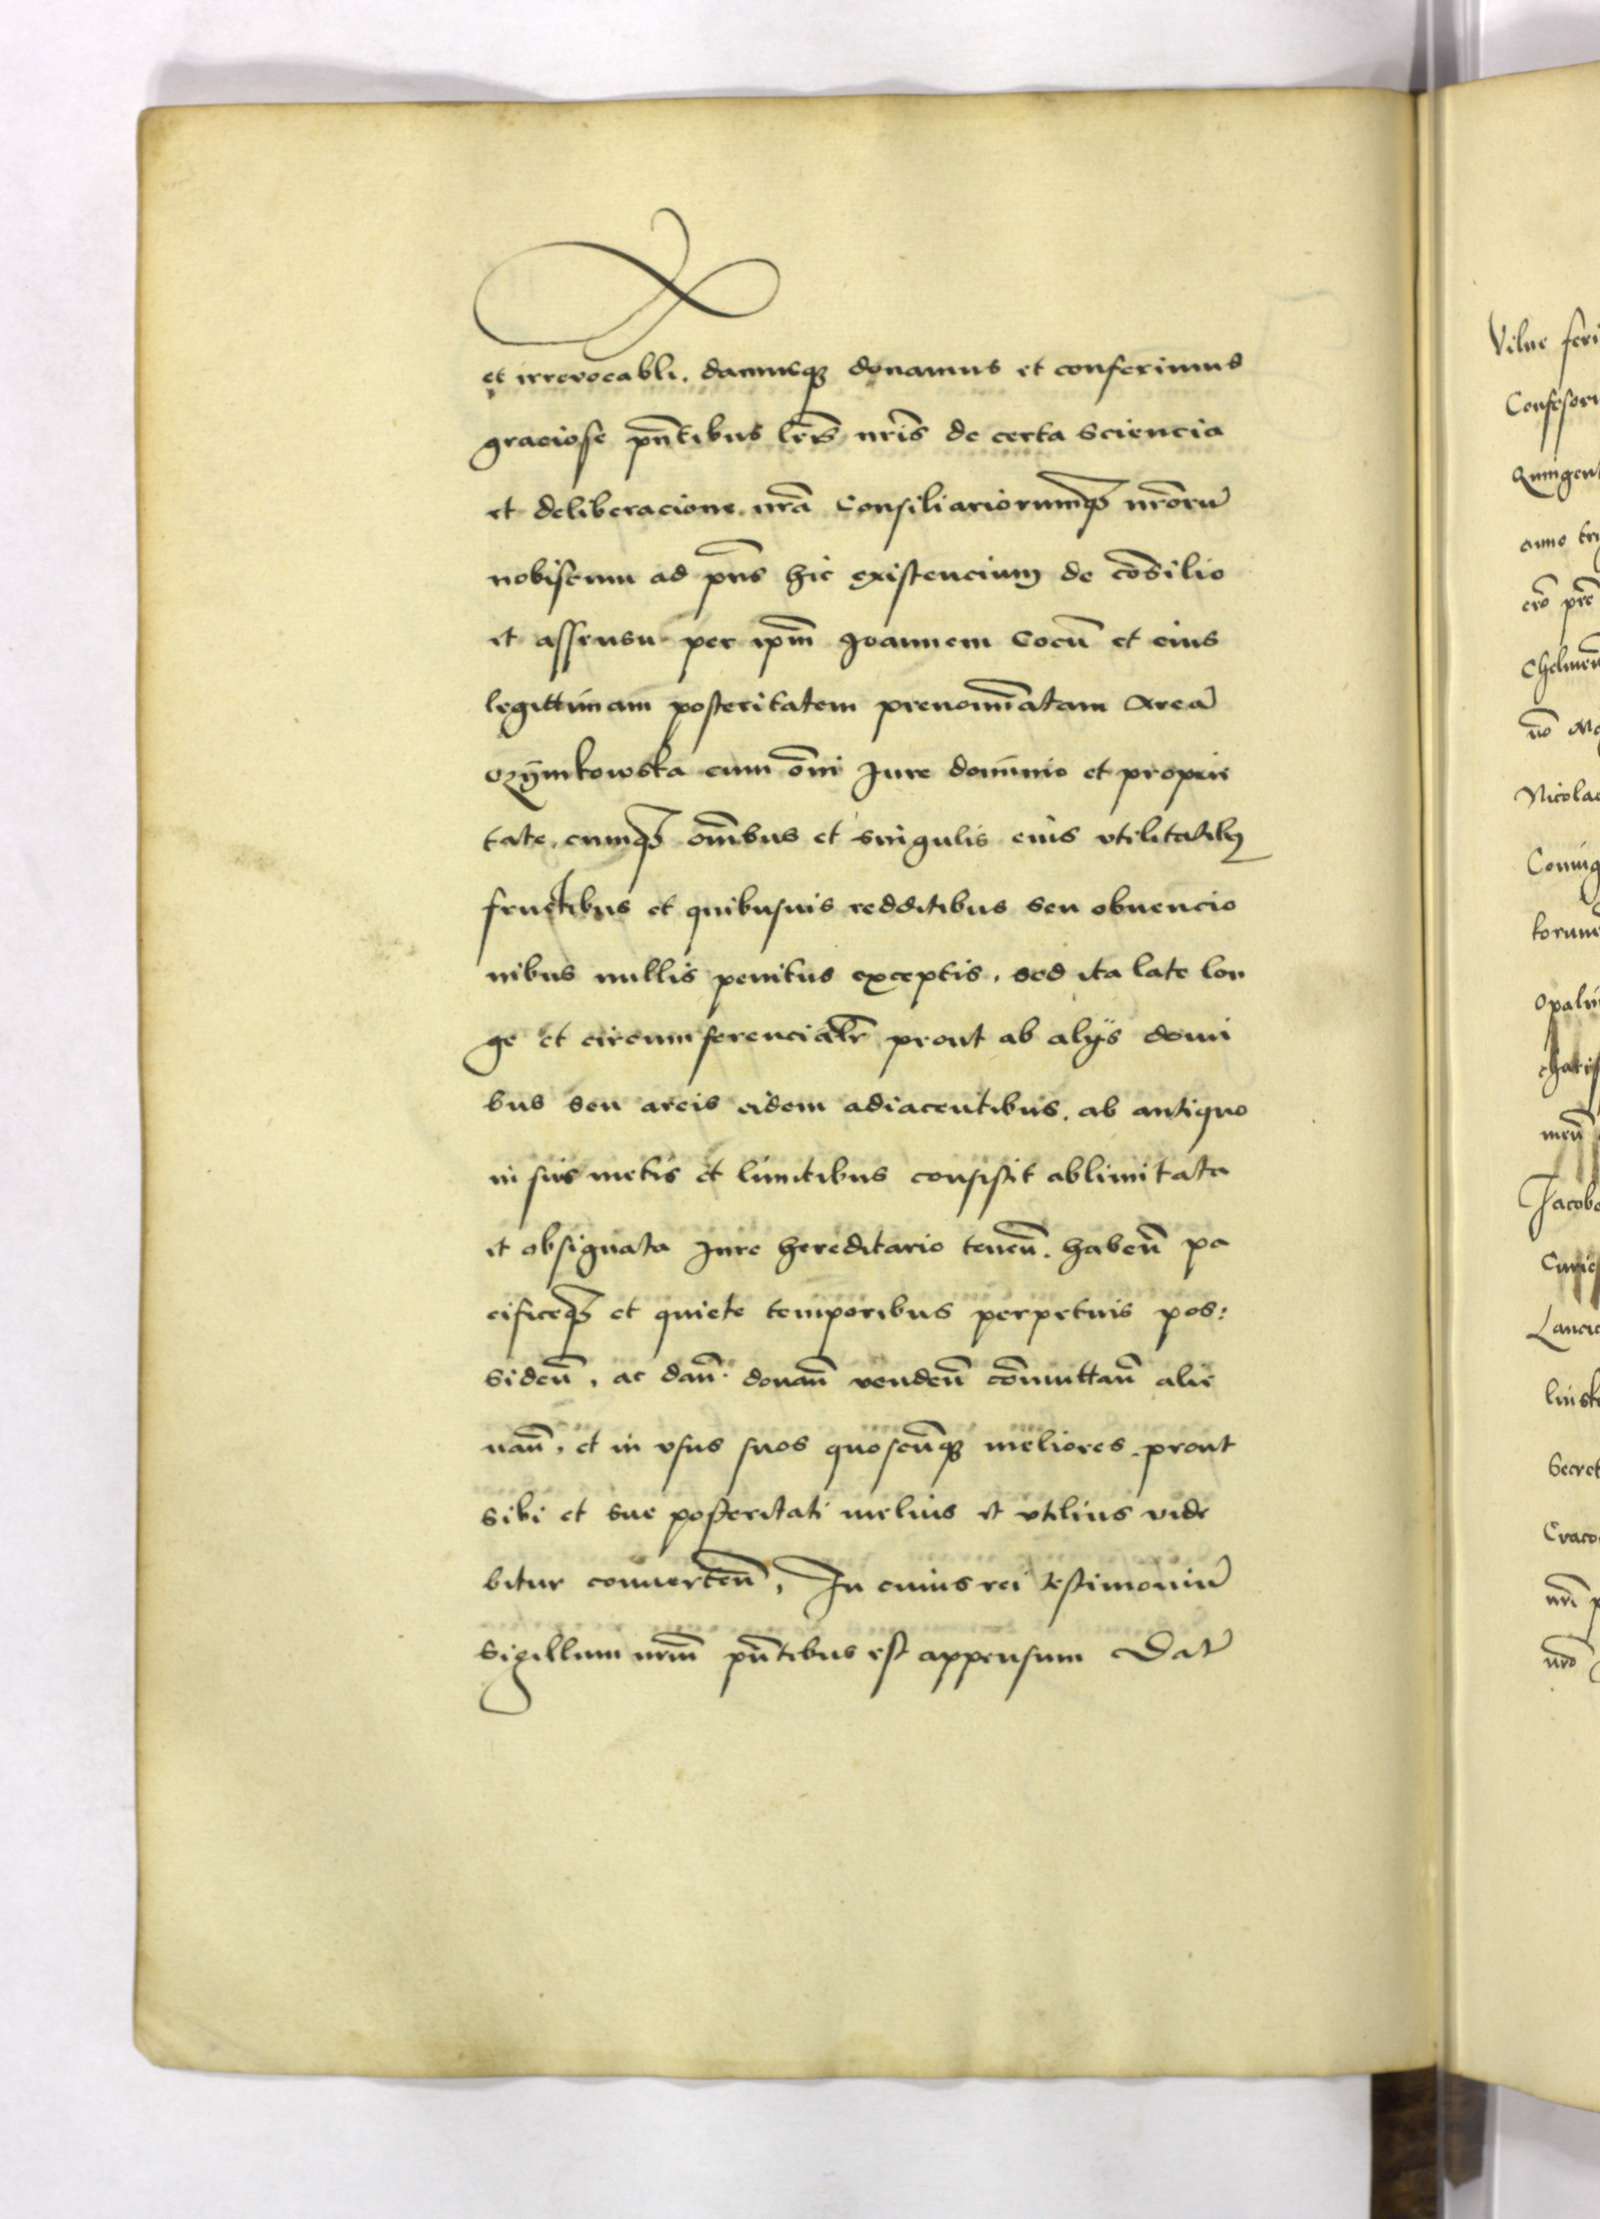 et irrevocabli. damusq donamus et conferimus
graciose pñtibus lr̃is nr̃is de certa sciencia
et deliberacione nr̃a Consiliariorumq nr̃orũ
nobiscum ad pñs hic existencium de cõsilio
et assensu per ip̃m Joannem Cocũ et eius
legittimam posteritatem prenomĩatam areã
cum õni Jure dominio et propri
tate. cumq om̃ibus et singulis eius vtilitatibus
fructibus et quibusuis redditibus seu obuencio
nibus nullis penitus exceptis, sed ita late lon
ge et circumferencialr̃ prout ab alijs domi
bus seu areis eidem adiacentibus. ab antiquo
in suis metis et limitibus consistit ablimitata
et obsignata Jure hereditario teneñ. habeñ pa
cificeq et quiete temporibus perpetuis pos:
sideñ, ac dañ. donañ vendeñ cõmuttañ alie
nañ, et in vsus suos quoscũq meliores. prout
sibi et sue posteritati melius et vtilius vide
bitur conuerteñ, In cuius rei testimoniũ
Sigillum nr̃m pñtibus est appensum Dat̃
Vilne feri
Confesor
Quingent
anno tri
Nicolao
Coniug
torum
Jacobo
Curie
Lanci
Secret
Craco